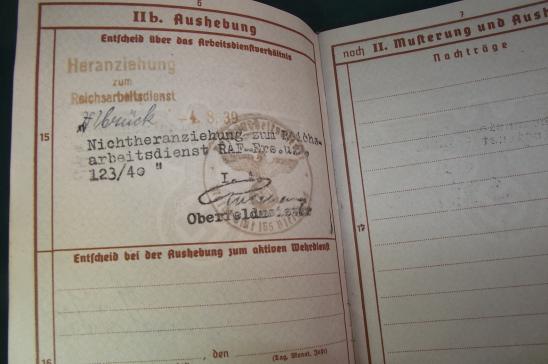 6
IIb. Aushebung
Entscheid über das Arbeitsdienstverhältnis
Heranziehung
zum
Reichsarbeitsdienst
-4. 8. 39
15
"Nichtheranziehung zum Reichs-
arbeitsdienst RAF-Fre.u.
123/40 "
I.
Oberfeldmeister
Entscheid bei der Aushebung zum aktiven Wehrdienst
16
, den
(Tag, Monat, Jahr)
7
noch II. Musterung und Aush
Nachträge
17